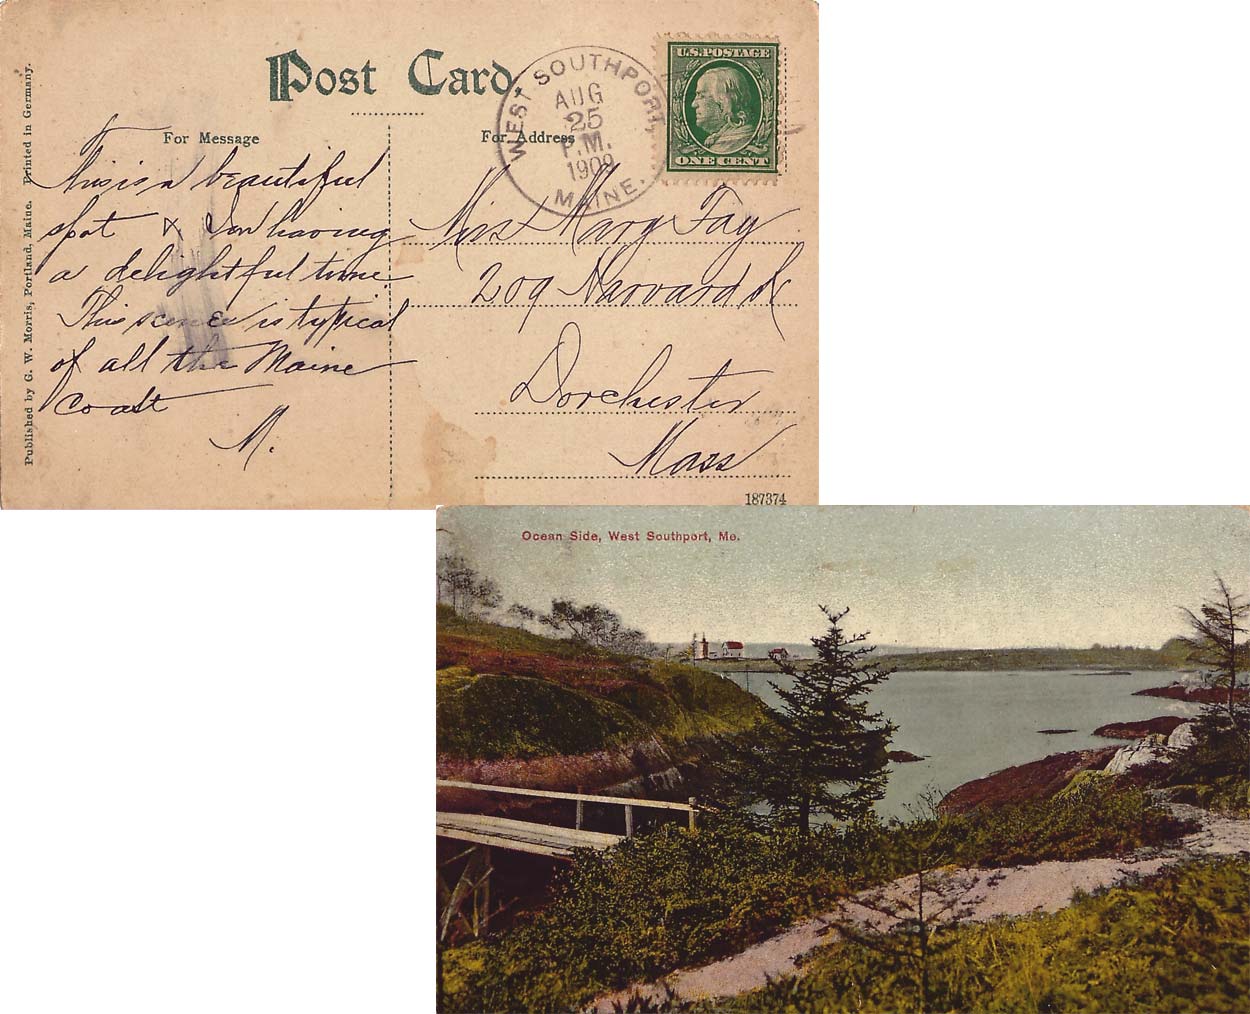 Post Card
For Message
For Address
WEST SOUTHPORT,
AUG
25
P.M.
1909
MAINE.
U.S. POSTAGE
ONE CENT
Published by G. W. Morris, Portland, Maine. Printed in Germany.
This is a beautiful
spot & I'm having
a delightful time.
This scene is typical
of all the Maine
Coast
M.
Miss Mary Fay
209 Harvard St
Dorchester
Mass
187374
Ocean Side, West Southport, Me.